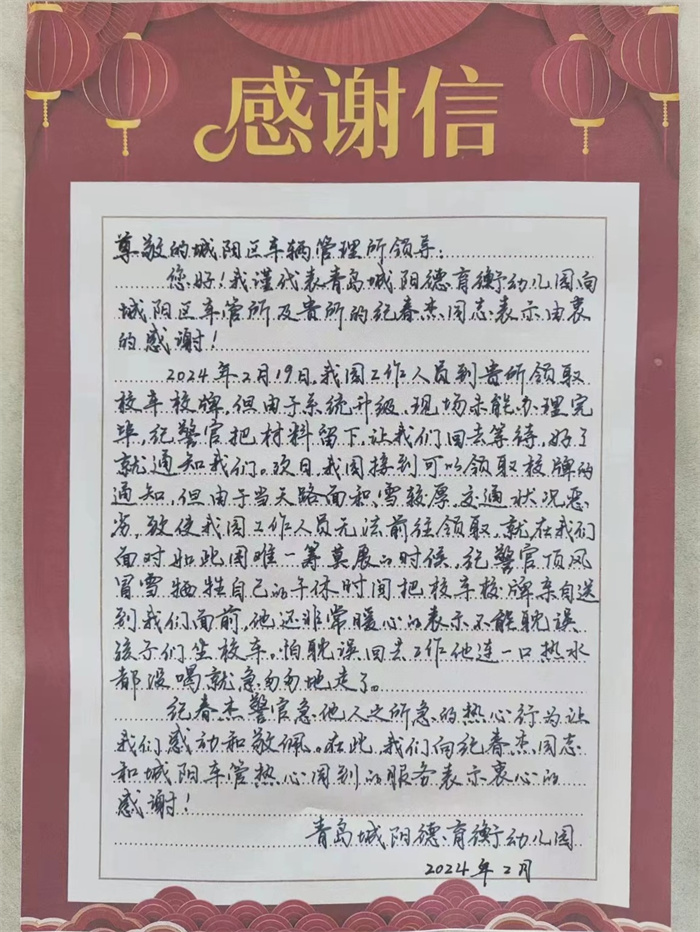 感谢信
尊敬的城阳区车辆管理所领导：
您好！我谨代表青岛城阳德育衡幼儿园向
城阳区车管所及贵所的纪春杰同志表示由衷
的感谢！
2024年2月19日，我园工作人员到贵所领取
校车校牌，但由于系统升级，现场未能办理完
毕，纪警官把材料留下，让我们回去等待，好了
就通知我们。次日，我园接到可以领取校牌的
通知，但由于当天路面积雪较厚，交通状况恶
劣，致使我园工作人员无法前往领取，就在我们
面对如此困难一筹莫展的时候，纪警官顶风
冒雪牺牲自己的午休时间把校车校牌亲自送
到我们面前，他还非常暖心的表示不能耽误
孩子们坐校车。怕耽误回去工作他连一口热水
都没喝就急匆匆地走了。
纪春杰警官急他人之所急的热心行为让
我们感动和敬佩。在此，我们向纪春杰同志
和城阳车管热心周到的服务表示衷心的
感谢！
青岛城阳德育衡幼儿园
2024年2月